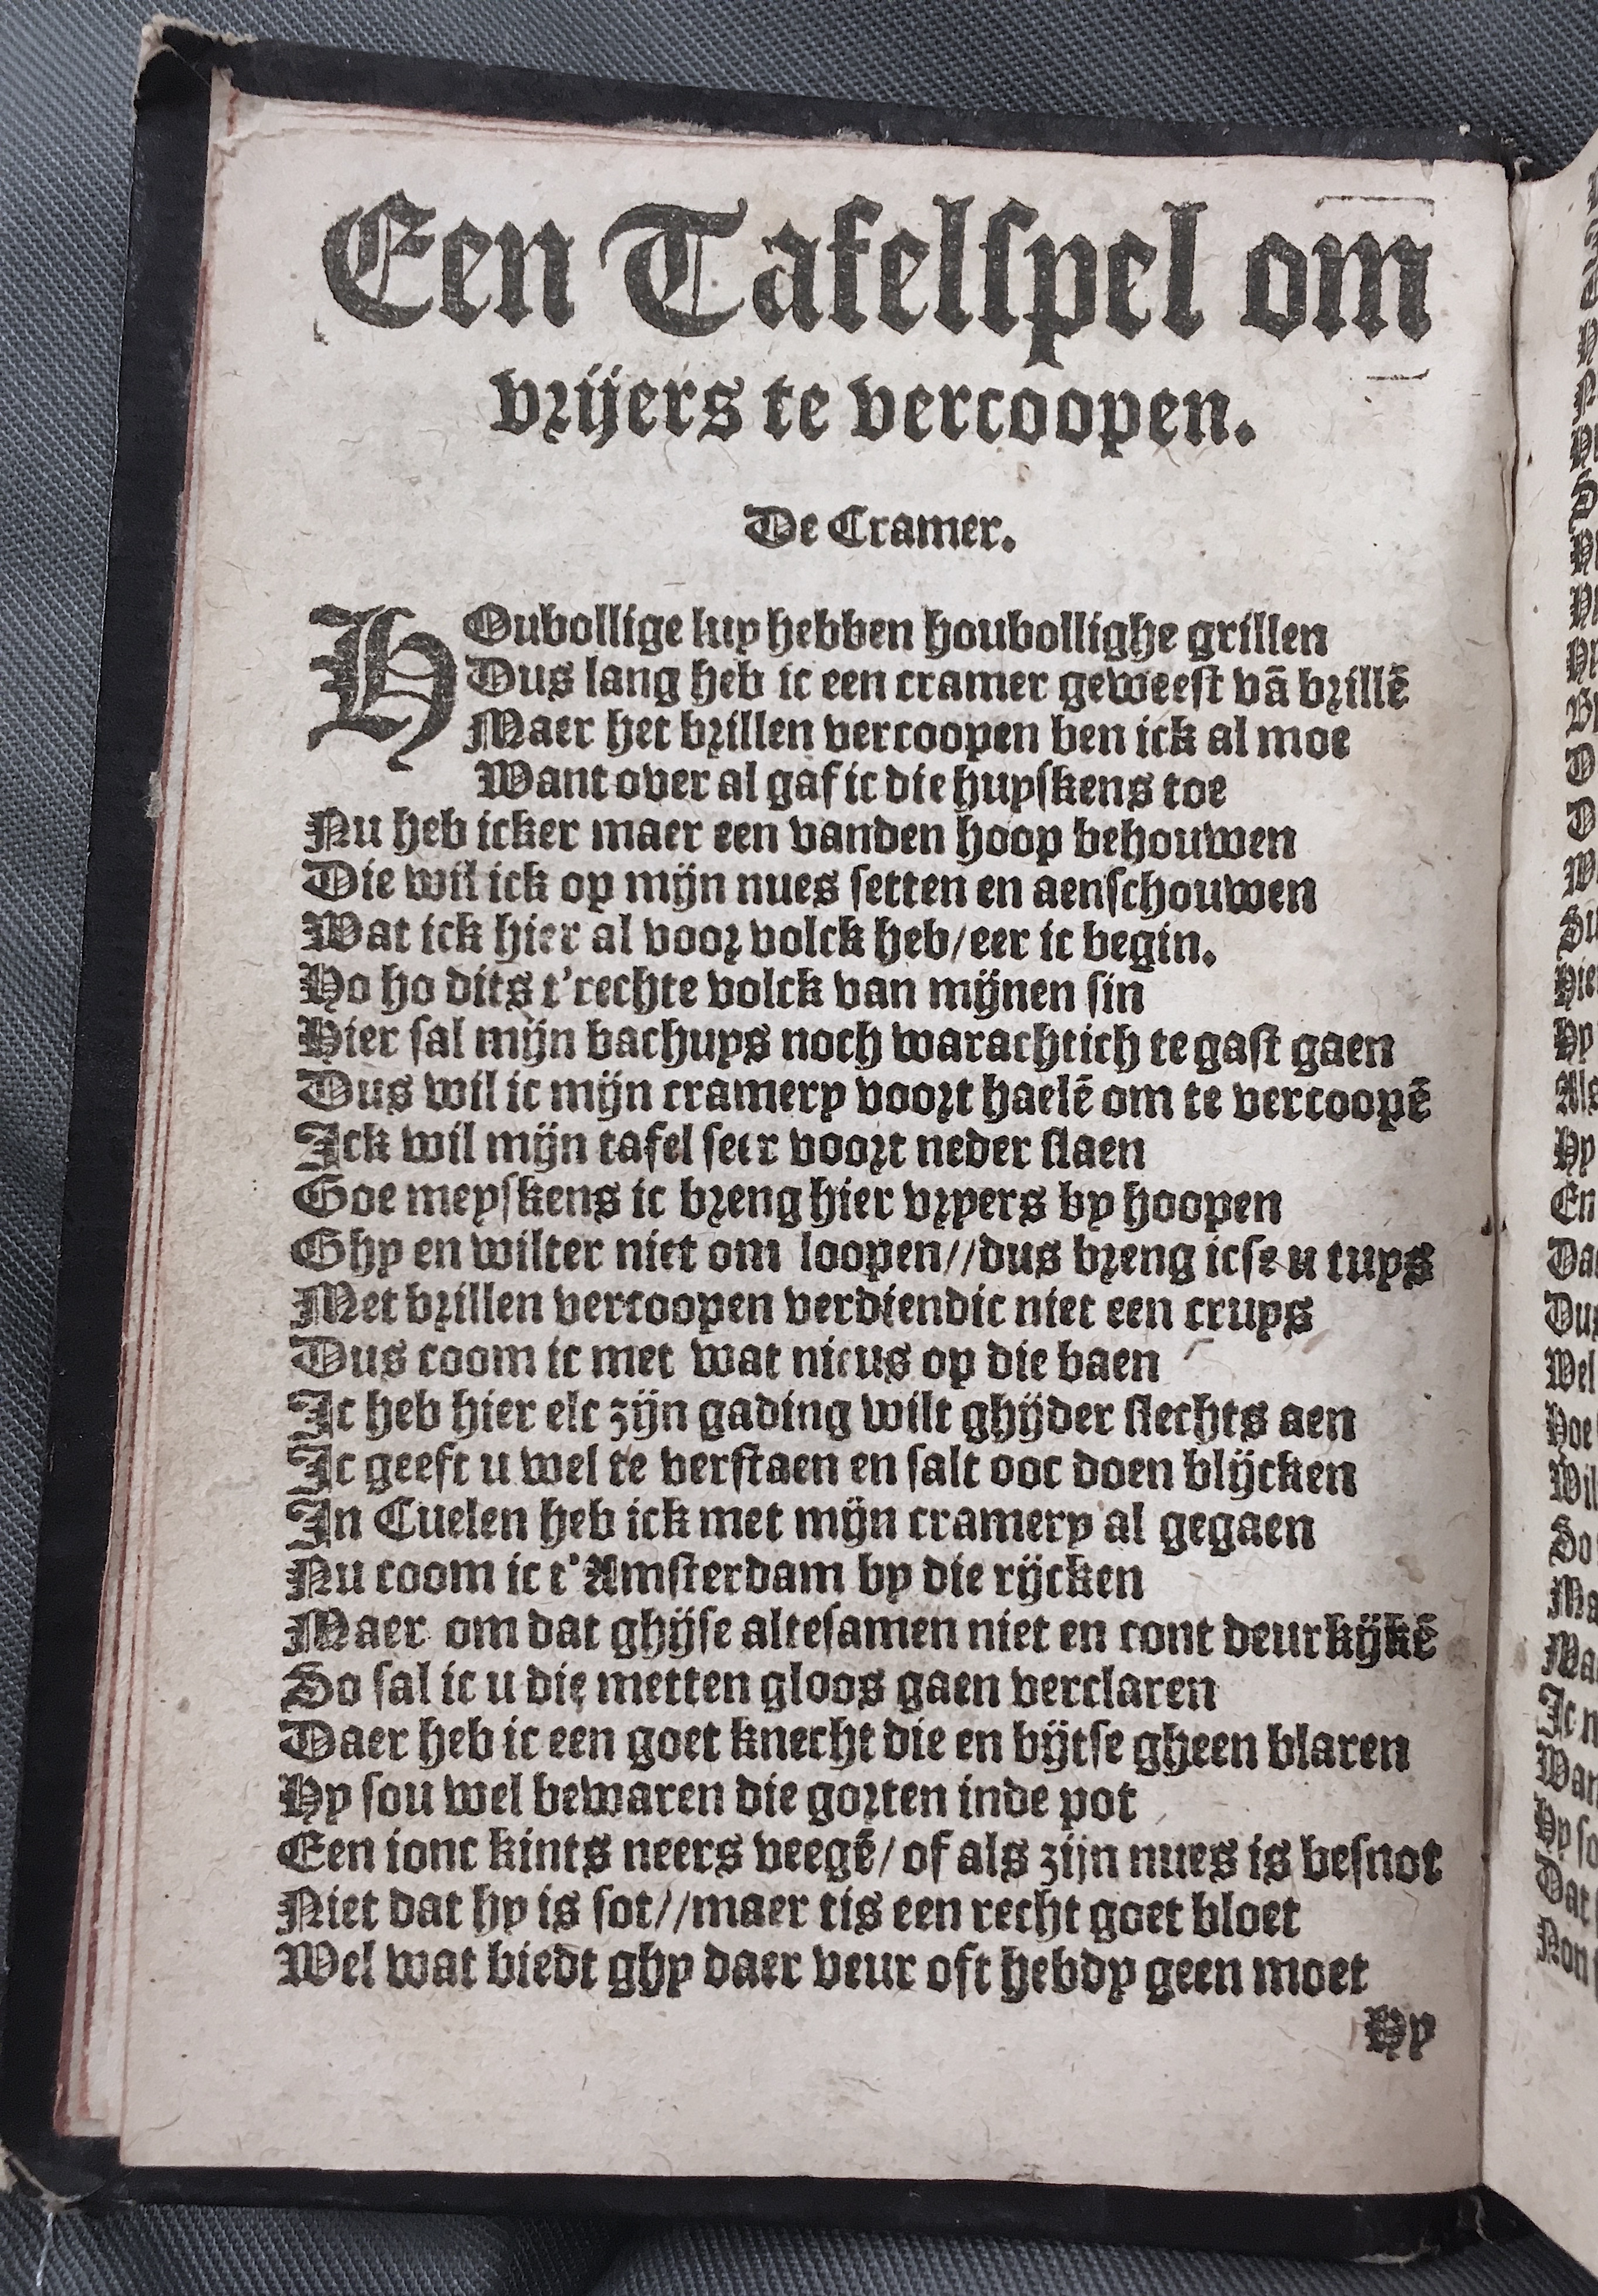 Een Tafelspel om
vrijers te vercoopen.
De Cramer.
HOubollige luy hebben houbollighe grillen
Dus lang heb ic een cramer geweest vā brillē
Maer het brillen vercoopen ben ick al moe
Want over al gaf ic die huyskens toe
Nu heb icker maer een vanden hoop behouwen
Die wil ick op mijn nues setten en aenschouwen
Wat ick hier al voor volck heb/eer ic begin.
Ho ho dits t'rechte volck van mijnen sin
Hier sal mijn bachuys noch warachtich te gast gaen
Dus wil ic mijn cramery voort haelē om te vercoopē
Ick wil mijn tafel seer voort neder slaen
Goe meyskens ic breng hier vryers by hoopen
Ghy en wilter niet om loopen//dus breng icse u tuys
Met brillen vercoopen verdiendic niet een cruys
Dus coom ic met wat nieus op die baen
Ic heb hier elc zijn gading wilt ghijder slechts aen
Ic geeft u wel te verstaen en salt ooc doen blijcken
In Cuelen heb ick met mijn cramery al gegaen
Nu coom ic t'Amsterdam by die rijcken
Maer om dat ghijse altesamen niet en cont deurkijkē
So sal ic u die metten gloos gaen verclaren
Daer heb ic een goet knecht die en bijtse gheen blaren
Hy sou wel bewaren die gorten inde pot
Een ionc kints neers veegē/ of als zijn nues is besnot
Niet dat hy is sot//maer tis een recht goet bloet
Wel wat biedt ghy daer veur oft hebdy geen moet
Hy